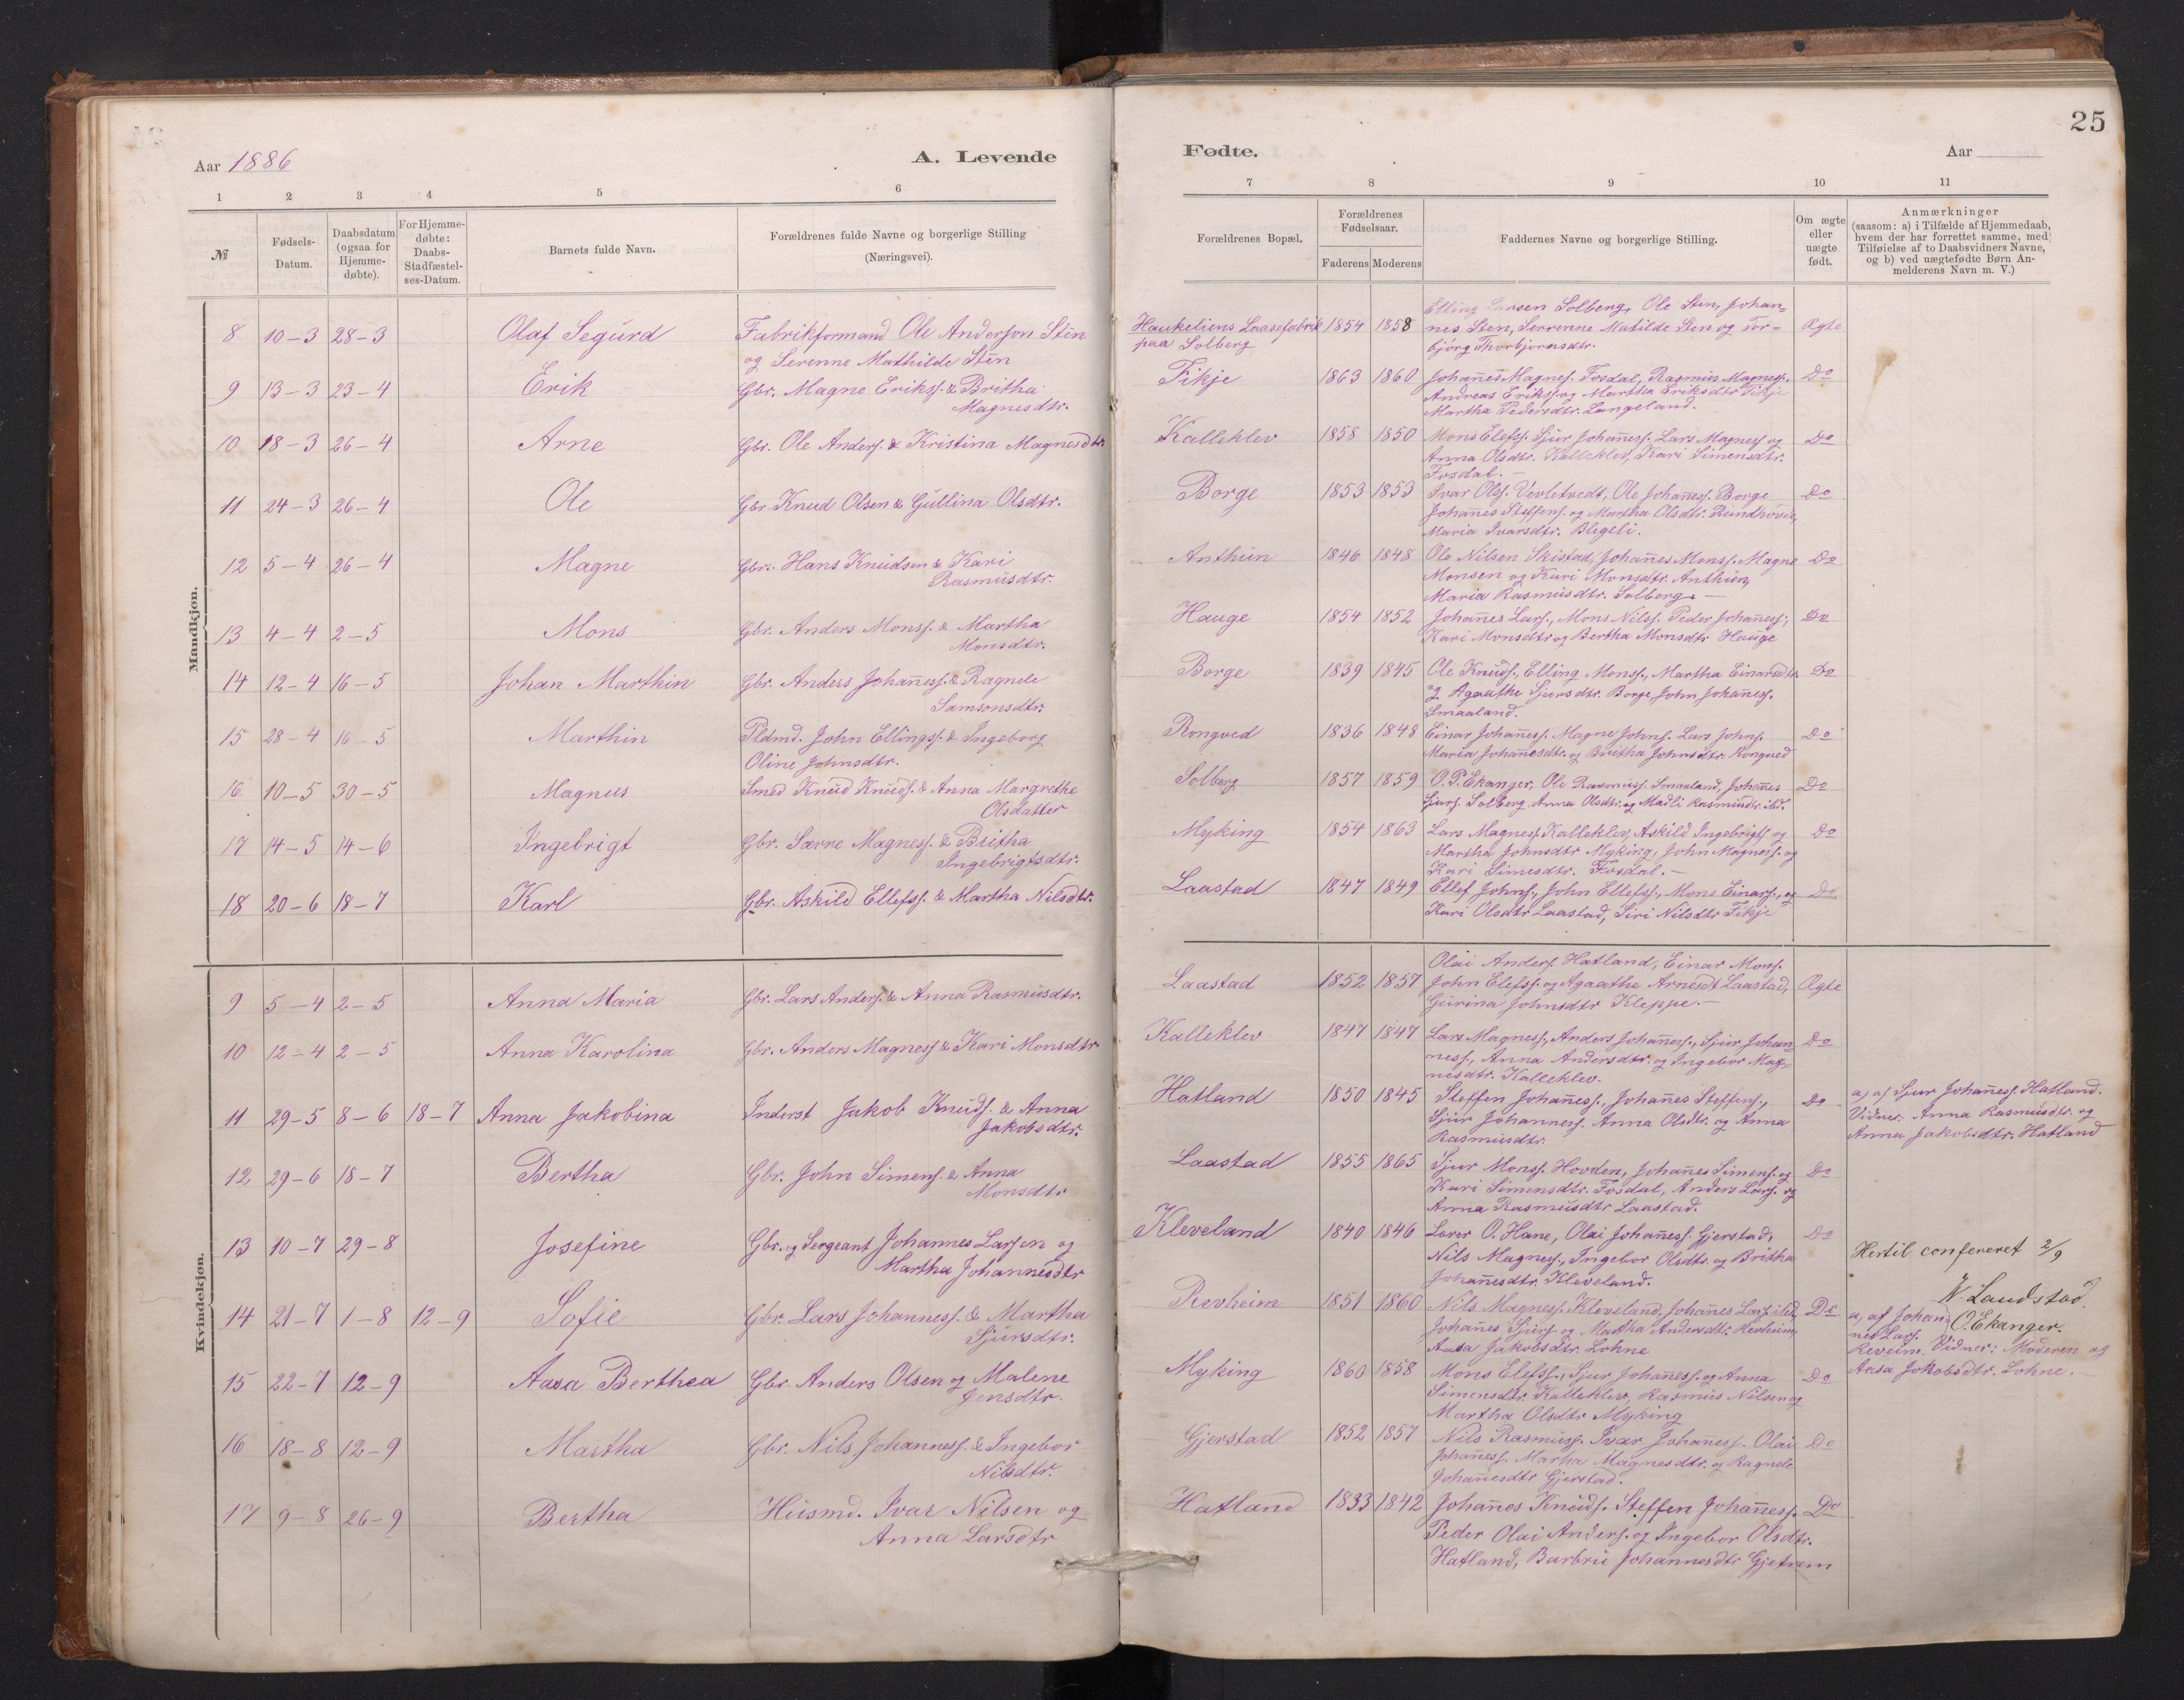 Aar 1886
A. Levende
1 2 3 4 5 6
№
Fødsels-Datum.
Daabsdatum (ogsaa for Hjemme-døbte).
For Hjemme-døbte: Daabs-Stadfæstel-ses-Datum.
Barnets fulde Navn.
Forældrenes fulde Navne og borgerlige Stilling
(Næringsvei).
Mandkjøn.
8 10-3 28-3 Olaf Segurd Fabrikformand Ole Anderson Sten
og Serenne Mathilde Sten
9 13-3 23-4 Erik Gbr. Magne Erikss. & Britha
Magnesdtr.
10 18-3 26-4 Arne Gbr. Ole Anders. & Kristina Magnesdtr.
11 24-3 26-4 Ole Gbr. Knud Olsen & Gullina Olsdtr.
12 5-4 26-4 Magne Gbr. Hans Knudsen & Kari
Rasmusdtr.
13 4-4 2-5 Mons Gbr. Anders Monss. & Martha
Monsdtr.
14 12-4 16-5 Johan Marthin Gbr. Anders Johaness. & Ragnele
Samsonsdtr.
15 28-4 16-5 Marthin Pldmd. John Ellings. & Ingeborg
Oline Johnsdtr.
16 10-5 30-5 Magnus Smed Knud Knuds. & Anna Margrethe
Olsdatter
17 14-5 14-6 Ingebrigt Gbr. Sævre Magness. & Britha
Ingebrigtsdtr.
18 20-6 18-7 Karl Gbr. Askild Ellefss. & Martha Nilsdtr.
Kvindekjøn.
9 5-4 2-5 Anna Maria Gbr. Lars Anders. & Anna Rasmusdtr.
10 12-4 2-5 Anna Karolina Gbr. Anders Magness & Kari Monsdtr
11 29-5 8-6 18-7 Anna Jakobina Inderst Jakob Knuds. & Anna
Jakobsdtr.
12 29-6 18-7 Bertha Gbr. John Simens. & Anna
Monsdtr
13 10-7 29-8 Josefine Gbr. og Sergeant Johannes Larsen og
Martha Johannesdtr
14 21-7 1-8 12-9 Sofie Gbr. Lars Johanness. & Martha
Sjursdtr.
15 22-7 12-9 Aasa Berthea Gbr. Anders Olsen og Malene
Jensdtr.
16 18-8 12-9 Martha Gbr. Nils Johanness. & Ingebor
Nilsdtr.
17 9-8 26-9 Bertha Husmd. Ivar Nilsen og
Anna Larsdtr
25
Fødte.
Aar
7 8 9 10 11
Forældrenes Bopæl.
Forældrenes Fødselsaar.
Faderens Moderens
Faddernes Navne og borgerlige Stilling.
Om ægte eller uægte født.
Anmærkninger
(saasom: a) i Tilfælde af Hjemmedaab,
hvem der har forrettet samme, med
Tilføielse af to Daabsvidners Navne,
og b) ved uægtefødte Børn An-
melderens Navn m. V.)
Elling Larsen Solberg, Ole Sten, Johan-
Haukeliens Laasefabrik 1854 1858 nes Sten, Serrenne Matilde Sten og Tor- Ægte
paa Solberg bjørg Thorbjørnsdtr.
Fikje 1863 1860 Johanes Magnes. Fosdal, Rasmus Magness. Do
Andreas Erikss. og Martha Eriksdtr Fikje
Martha Pedersdtr. Langeland.
Kalleklev 1858 1850 Mons Elefs. Sjur Johaness. Lars Magness og Do
Anna Olsdtr. Kalleklev, Kari Simensdtr.
Fosdal.
Borge 1853 1853 Ivar Olss. Vevletvedt, Ole Johaness. Borge Do
Johanes Steffens. og Martha Olsdtr. Rundhovde,
Maria Ivarsdtr. Blegeli.
Anthun 1846 1848 Ole Nilsen Skistad, Johanes Monss. Magne Do
Monsen og Kari Monsdtr. Anthun,
Maria Rasmusdtr. Solberg.
Hauge 1854 1852 Johanes Larss., Mons Nilss. Peder Johaness; Do
Kari Monsdtr og Bertha Monsdtr Hauge
Borge 1839 1845 Ole Knuds., Elling Monss., Martha Einarsdtr Do
og Agaathe Sjursdtr. Borge, John Johaness.
Smaaland.
Rongved 1836 1848 Einar Johaness. Magne Johns. Lars Johns. Do
Maria Johanesdtr. og Britha Johnsdtr. Rongved
Solberg 1857 1859 O. P. Ekanger, Ole Rasmuss. Smaaland, Johanes Do
Sjurs. Solberg, Anna Olsdtr. og Madli Rasmusdtr. ibd.
Myking 1854 1863 Lars Magness. Kalleklev, Askild Ingebrigts og Do
Martha Johnsdtr Myking, John Magness. og
Kari Simesdtr. Fosdal.
Laastad 1847 1849 Ellef Johns., John Ellefss., Mons Einars., og Do
Kari Olsdtr Laastad, Siri Nilsdtr Fikje
Olai Anders. Hatland, Einar Mons.
Laastad 1852 1857 John Elefss. og Agaathe Arnesdt Laastad, Ægte
Gurina Johnsdtr Kleppe.
Kalleklev 1847 1847 Lars Magness., Anders Johaness., Sjur Johan- Do
ness., Anna Andersdtr. og Ingebor Mag-
nesdtr. Kalleklev.
Hatland 1850 1845 Steffen Johaness., Johanes Steffens., Do
Sjur Johanness. Anna Olsdtr. og Anna
Rasmusdtr.
a, af Sjur Johaness. Hatland.
Vidner. Anna Rasmusdtr. og
Anna Jakobsdtr. Hatland
Laastad 1855 1865 Sjur Monss. Hovden, Johanes Simens. og Do
Kari Simensdtr. Fosdal, Anders Lars. og
Anna Rasmusdtr Laastad.
Kleveland 1840 1846 Lærer O. Hane, Olai Johaness. Gjerstad, Do
Nils Magness., Ingebor Olsdtr. og Britha
Johanesdtr. Kleveland.
Hertil confereret 2/9
W. Landstad.
O. Ekanger.
Revheim 1851 1860 Nils Magness. Kleveland, Johanes Larss. ibd, Do
Johanes Sjurs. og Martha Andersdtr. Revheim,
Aasa Jakobsdtr. Lohne
a, af Johan-
nes Lars.
Reveim. Vidner: Moderen og
Aasa Jakobsdtr. Lohne.
Myking 1860 1858 Mons Elefss., Sjur Johaness. og Anna Do
Simensdtr. Kalleklev, Rasmus Nilsen og
Martha Olsdtr Myking
Gjerstad 1852 1857 Nils Rasmuss. Ivar Johaness. Olai Do
Johaness. Marha Magnesdtr. og Ragnele
Johanesdtr Gjerstad.
Hatland 1833 1842 Johanes Knuds. Steffen Johaness. Do
Peder Olai Anders. og Ingebor Olsdtr.
Hatland, Barbru Johannesdtr Gjetrem